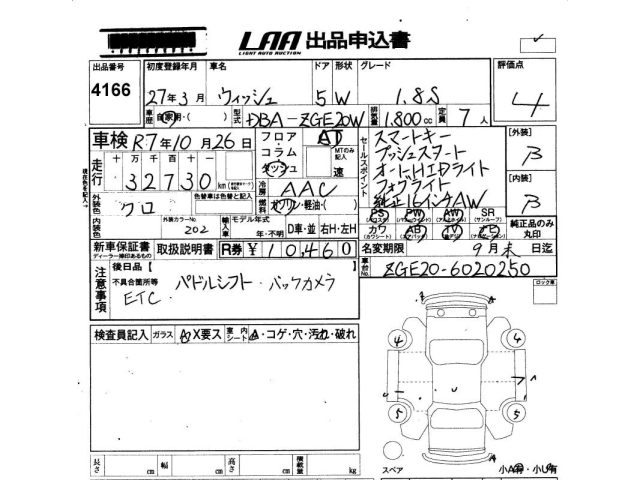 LAA 出品申込書
LIGHT AUTO AUCTION
出品番号 4166
初度登録年月 27年3月
車名 ウィッシュ
ドア 5
形状 W
グレード 1.8S
評価点 4
車歴 自家用・( )
型式 DBA-ZGE20W
排気量 1,800cc
定員 7人
車検 R7年10月26日
フロア・コラム ダッシュ
AT
MTのみ記入 速
セールスポイント
スマートキー
プッシュスタート
オートHIDライト
フォグライト
純正16インチAW
外装 B
内装 B
走行 十万千百十 32730 km
冷房 AAC
外装色 クロ
色替車は色替と記入
燃料 ガソリン・軽油・( )
PS PW AW SR (サンルーフ)
カワ (カワシート) AB (エアバッグ) TV ナビ
純正品のみ丸印
内装色
外装カラーNo. 202
輸入車 モデル年式 年・不明 D車・並 右H・左H
新車保証書 ディーラー捺印あるもの
取扱説明書
R券 ¥10,460
名変期限 9月末日迄
注意事項
後日品【 】
不具合箇所等 パドルシフト・バックカメラ
ETC.
車台No. ZGE20-6020250
ロック車
検査員記入 ガラス A・X要ス 車内シート A・コゲ・穴・汚れ・破れ
4 4
5 5
スペア
小A有・小U有
長さ cm 幅 cm 高さ cm 積載量 kg